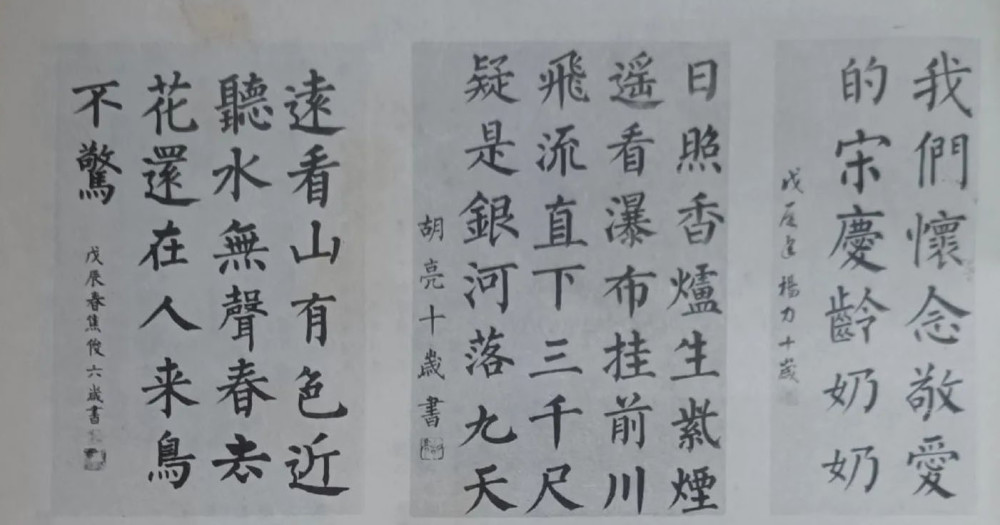 我們懷念敬愛
的宋慶齡奶奶
戊辰年楊力十歲
日照香爐生紫煙
遥看瀑布挂前川
飛流直下三千尺
疑是銀河落九天
胡亮十歲書
遠看山有色近
聽水無聲春去
花還在人来鳥
不驚
戊辰春焦俊六歲書